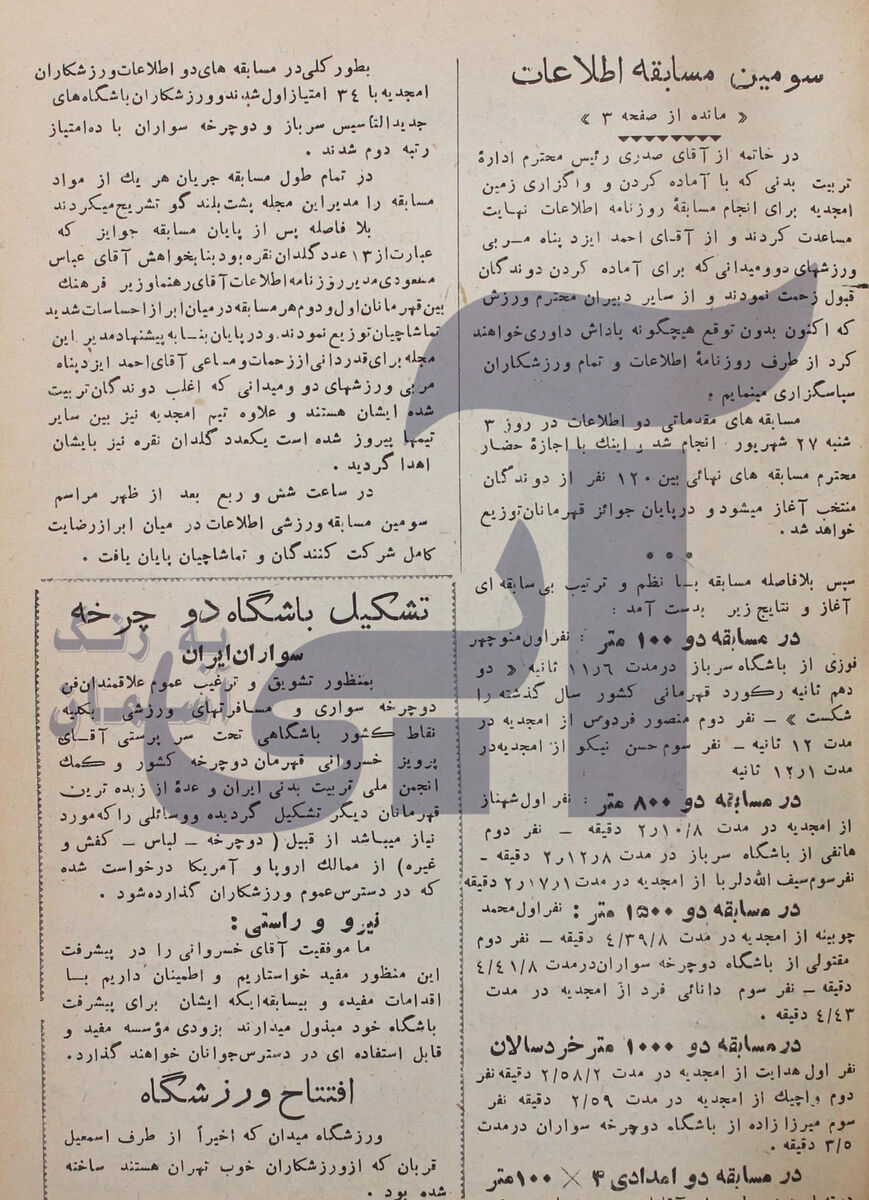 سومین مسابقه اطلاعات
« مانده از صفحه ۳ »
در خاتمه از آقای صدری رئیس محترم ادارهٔ
تربیت بدنی که با آماده کردن و واگزاری زمین
امجدیه برای انجام مسابقهٔ روزنامه اطلاعات نهایت
مساعدت کردند و از آقای احمد ایزد پناه مربی
ورزشهای دوومیدانی که برای آماده کردن دوندگان
قبول زحمت نمودند و از سایر دبیران محترم ورزش
که اکنون بدون توقع هیچگونه پاداش داوری خواهند
کرد از طرف روزنامهٔ اطلاعات و تمام ورزشکاران
سپاسگزاری مینمایم .
مسابقه های مقدماتی دو اطلاعات در روز ۳
شنبه ۲۷ شهریور انجام شد و اینك با اجازهٔ حضار
محترم مسابقه های نهائی بین ۱۲۰ نفر از دوندگان
منتخب آغاز میشود و درپایان جوائز قهرمانان توزیع
خواهد شد .
* * *
سپس بلافاصله مسابقه بـا نظم و ترتیب بی سابقه ای
آغاز و نتایج زیر بدست آمد :
در مسابقه دو ۱۰۰ متر : نفر اول منوچهر
فوزی از باشگاه سرباز درمدت ۱۱٫۶ ثانیه « دو
دهم ثانیه رکورد قهرمانی کشور سال گذشته را
شکست » ـ نفر دوم منصور فردوس از امجدیه در
مدت ۱۲ ثانیه ـ نفر سوم حسن نیکو از امجدیه در
مدت ۱۲٫۱ ثانیه
در مسابقه دو ۸۰۰ متر : نفر اول شهناز
از امجدیه در مدت ۲٫۱۰/۸ دقیقه ـ نفر دوم
هاتفی از باشگاه سرباز در مدت ۲٫۱۲٫۸ دقیقه ـ
نفرسوم سیف الله دلربا از امجدیه در مدت ۲٫۱۷٫۱ دقیقه
در مسابقه دو ۱۵۰۰ متر : نفر اول محمد
چوبینه از امجدیه در مدت ۴/۳۹/۸ دقیقه ـ نفر دوم
مقتولی از باشگاه دوچرخه سواران درمدت ۴/۴۱/۸
دقیقه ـ نفر سوم دانائی فرد از امجدیه در مدت
۴/۴۳ دقیقه .
در مسابقه دو ۱۰۰۰ متر خردسالان
نفر اول هدایت از امجدیه در مدت ۲/۵۸/۲ دقیقه نفر
دوم واچیك از امجدیه در مدت ۲/۵۹ دقیقه نفر
سوم میرزا زاده از باشگاه دوچرخه سواران درمدت
۳/۵ دقیقه .
در مسابقه دو امدادی ۴ × ۱۰۰ متر
بطور کلی در مسابقه های دو اطلاعات ورزشکاران
امجدیه با ۳۴ امتیاز اول شدند و ورزشکاران باشگاه های
جدیدالتأسیس سرباز و دوچرخه سواران با ده امتیاز
رتبه دوم شدند .
در تمام طول مسابقه جریان هر یك از مواد
مسابقه را مدیر این مجله پشت بلند گو تشریح میکردند
بلا فاصله پس از پایان مسابقه جوایز که
عبارت از ۱۳ عدد گلدان نقره بود بنا بخواهش آقای عباس
مسعودی مدیر روزنامه اطلاعات آقای رهنما وزیر فرهنگ
بین قهرمانان اول و دوم هر مسابقه درمیان ابراز احساسات شدید
تماشاچیان توزیع نمودند. و در پایان بنـا به پیشنهاد مدیر این
مجله برای قدردانی از زحمات و مساعی آقای احمد ایزدپناه
مربی ورزشهای دو ومیدانی که اغلب دوندگان تربیت
شده ایشان هستند و علاوه تیم امجدیه نیز بین سایر
تیمها پیروز شده است یکعدد گلدان نقره نیز بایشان
اهدا گردید .
در ساعت شش و ربع بعد از ظهر مراسم
سومین مسابقه ورزشی اطلاعات در میان ابراز رضایت
کامل شرکت کنندگان و تماشاچیان پایان یافت .
تشکیل باشگاه دو چرخه
سواران ایران
بمنظور تشویق و ترغیب عموم علاقمندان فن
دوچرخه سواری و مسافرتهای ورزشی بکلیه
نقاط کشور باشگاهی تحت سر پرستی آقـای
پرویز خسروانی قهرمان دوچرخه کشور و کمك
انجمن ملی تربیت بدنی ایران و عدهٔ از زبده ترین
قهرمانان دیگر تشکیل گردیده و وسائلی را که مورد
نیاز میباشد از قبیل ( دوچرخه ـ لباس ـ کفش و
غیره ) از ممالك اروپا و آمریکا درخواست شده
که در دسترس عموم ورزشکاران گذارده شود .
نیرو و راستی :
ما موفقیت آقای خسروانی را در پیشرفت
این منظور مفید خواستاریم و اطمینان داریم بـا
اقدامات مفید و بیسابقه ایکه ایشان برای پیشرفت
باشگاه خود مبذول میدارند بزودی مؤسسه مفید و
قابل استفاده ای در دسترس جوانان خواهند گذارد.
افتتاح ورزشگاه
ورزشگاه میدان که اخیراً از طرف اسمعیل
قربان که از ورزشکاران خوب تهران هستند ساخته
شده بود .
آبی
به رنگ
آسمان